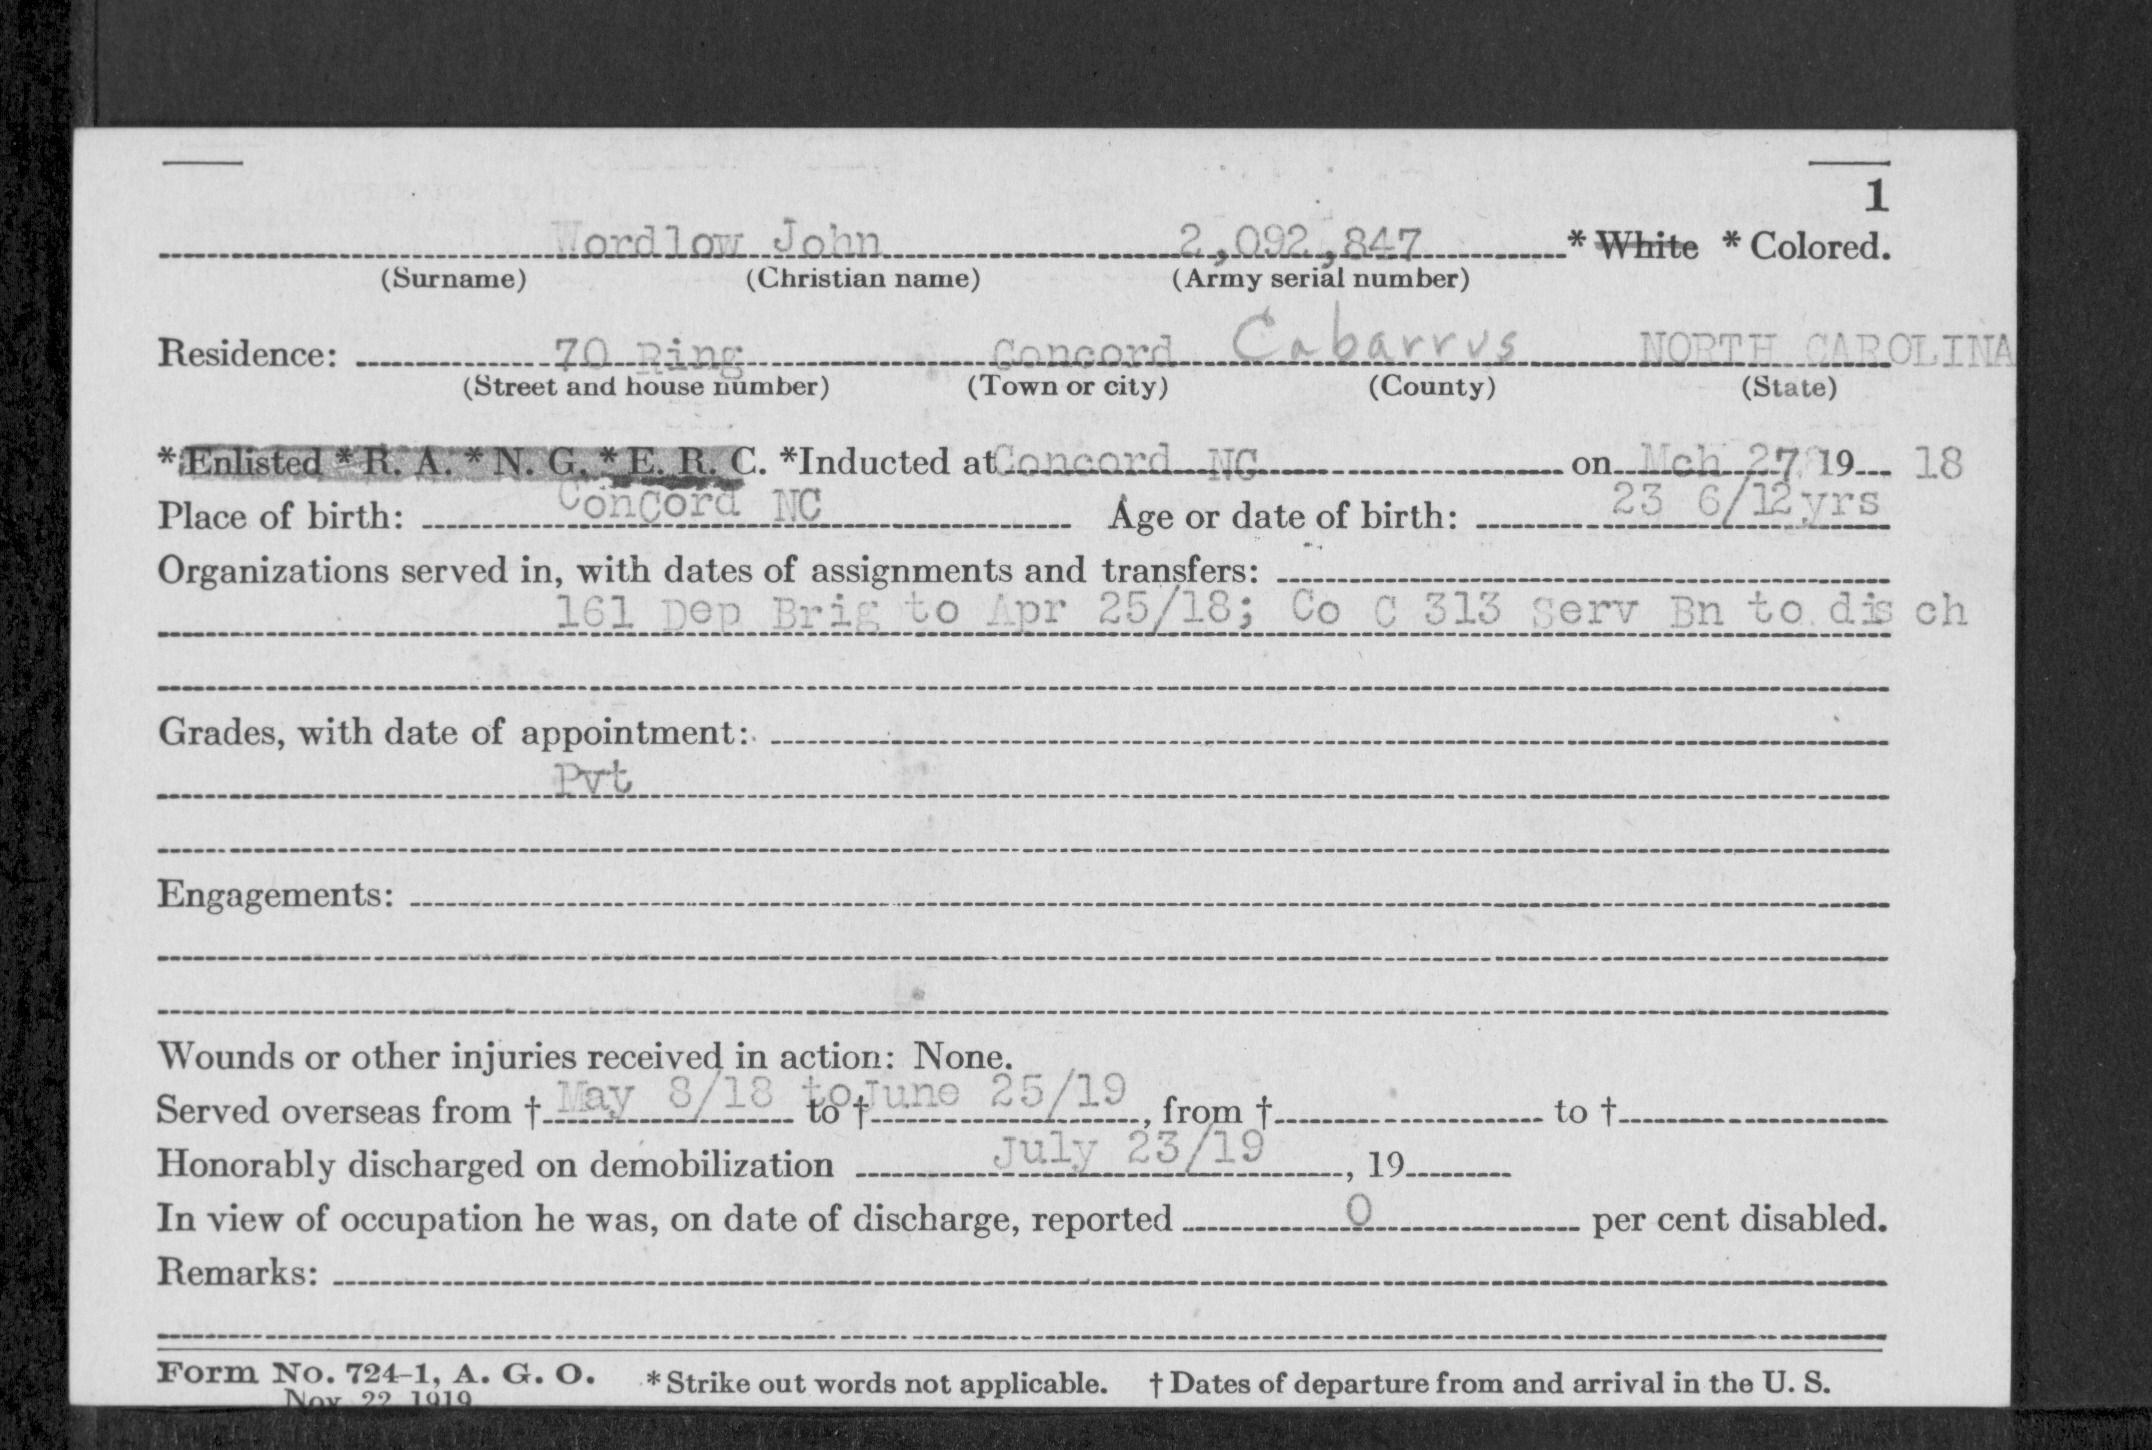 1
Wordlow John 2,092,847 * White * Colored.
(Surname) (Christian name) (Army serial number)
Residence: 70 Ring Concord Cabarrus NORTH CAROLINA
(Street and house number) (Town or city) (County) (State)
*Enlisted *R. A. *N. G. *E. R. C. *Inducted at Concord NC on Mch 27, 19 18
Place of birth: Concord NC Age or date of birth: 23 6/12 yrs
Organizations served in, with dates of assignments and transfers:
161 Dep Brig to Apr 25/18; Co C 313 Serv Bn to disch
Grades, with date of appointment:
Pvt
Engagements:
Wounds or other injuries received in action: None.
Served overseas from † May 8/18 to to † June 25/19, from † to †
Honorably discharged on demobilization July 23/19, 19
In view of occupation he was, on date of discharge, reported 0 per cent disabled.
Remarks:
Form No. 724-1, A. G. O. *Strike out words not applicable. † Dates of departure from and arrival in the U. S.
Nov. 22, 1919